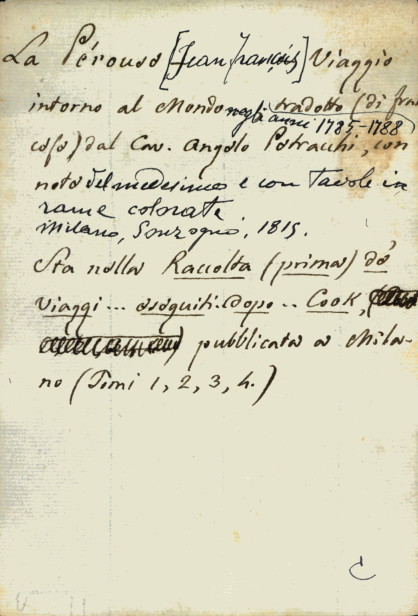 La Pérouse [Jean François] Viaggio
intorno al Mondo negli anni 1785-1788 tradotto (di fran
cese) dal Cav. Angelo Petracchi, con
note del medesimo e con Tavole in
rame colorate.
Milano, Sonzogno, 1815.
Sta nella Raccolta (prima) de'
viaggi ... eseguiti dopo .. Cook,
pubblicata a Mila-
no (Tomi 1, 2, 3, 4.)
C